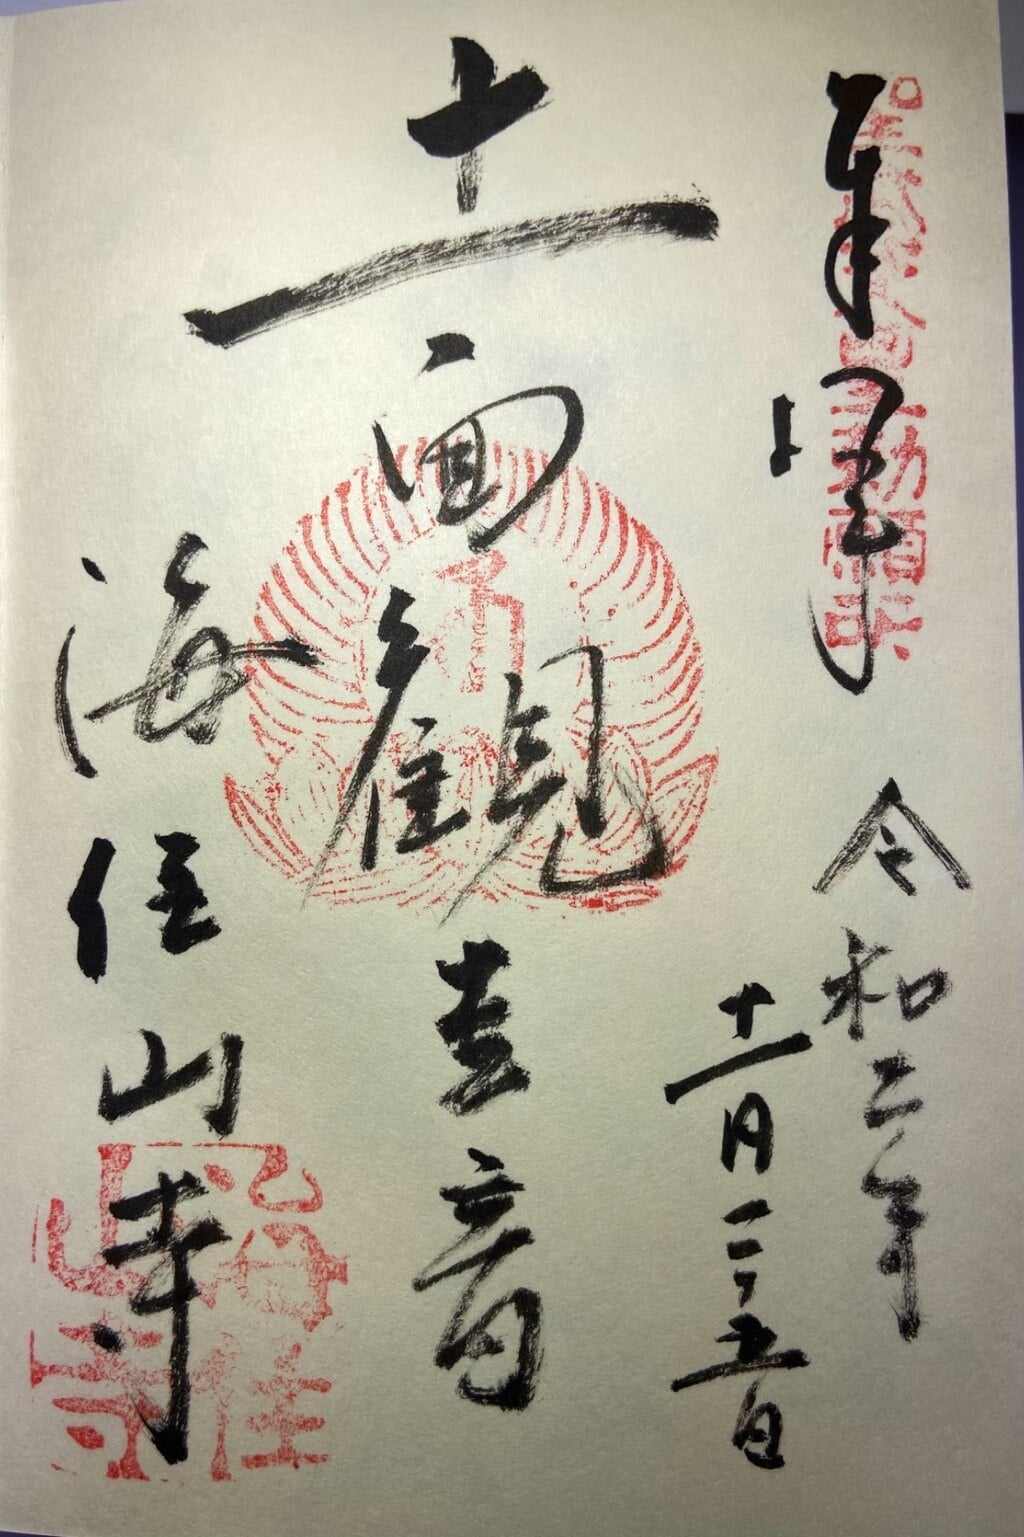 奉拝
令和二年
十一月二十五日
十一面観世音
海住山寺
海住山寺